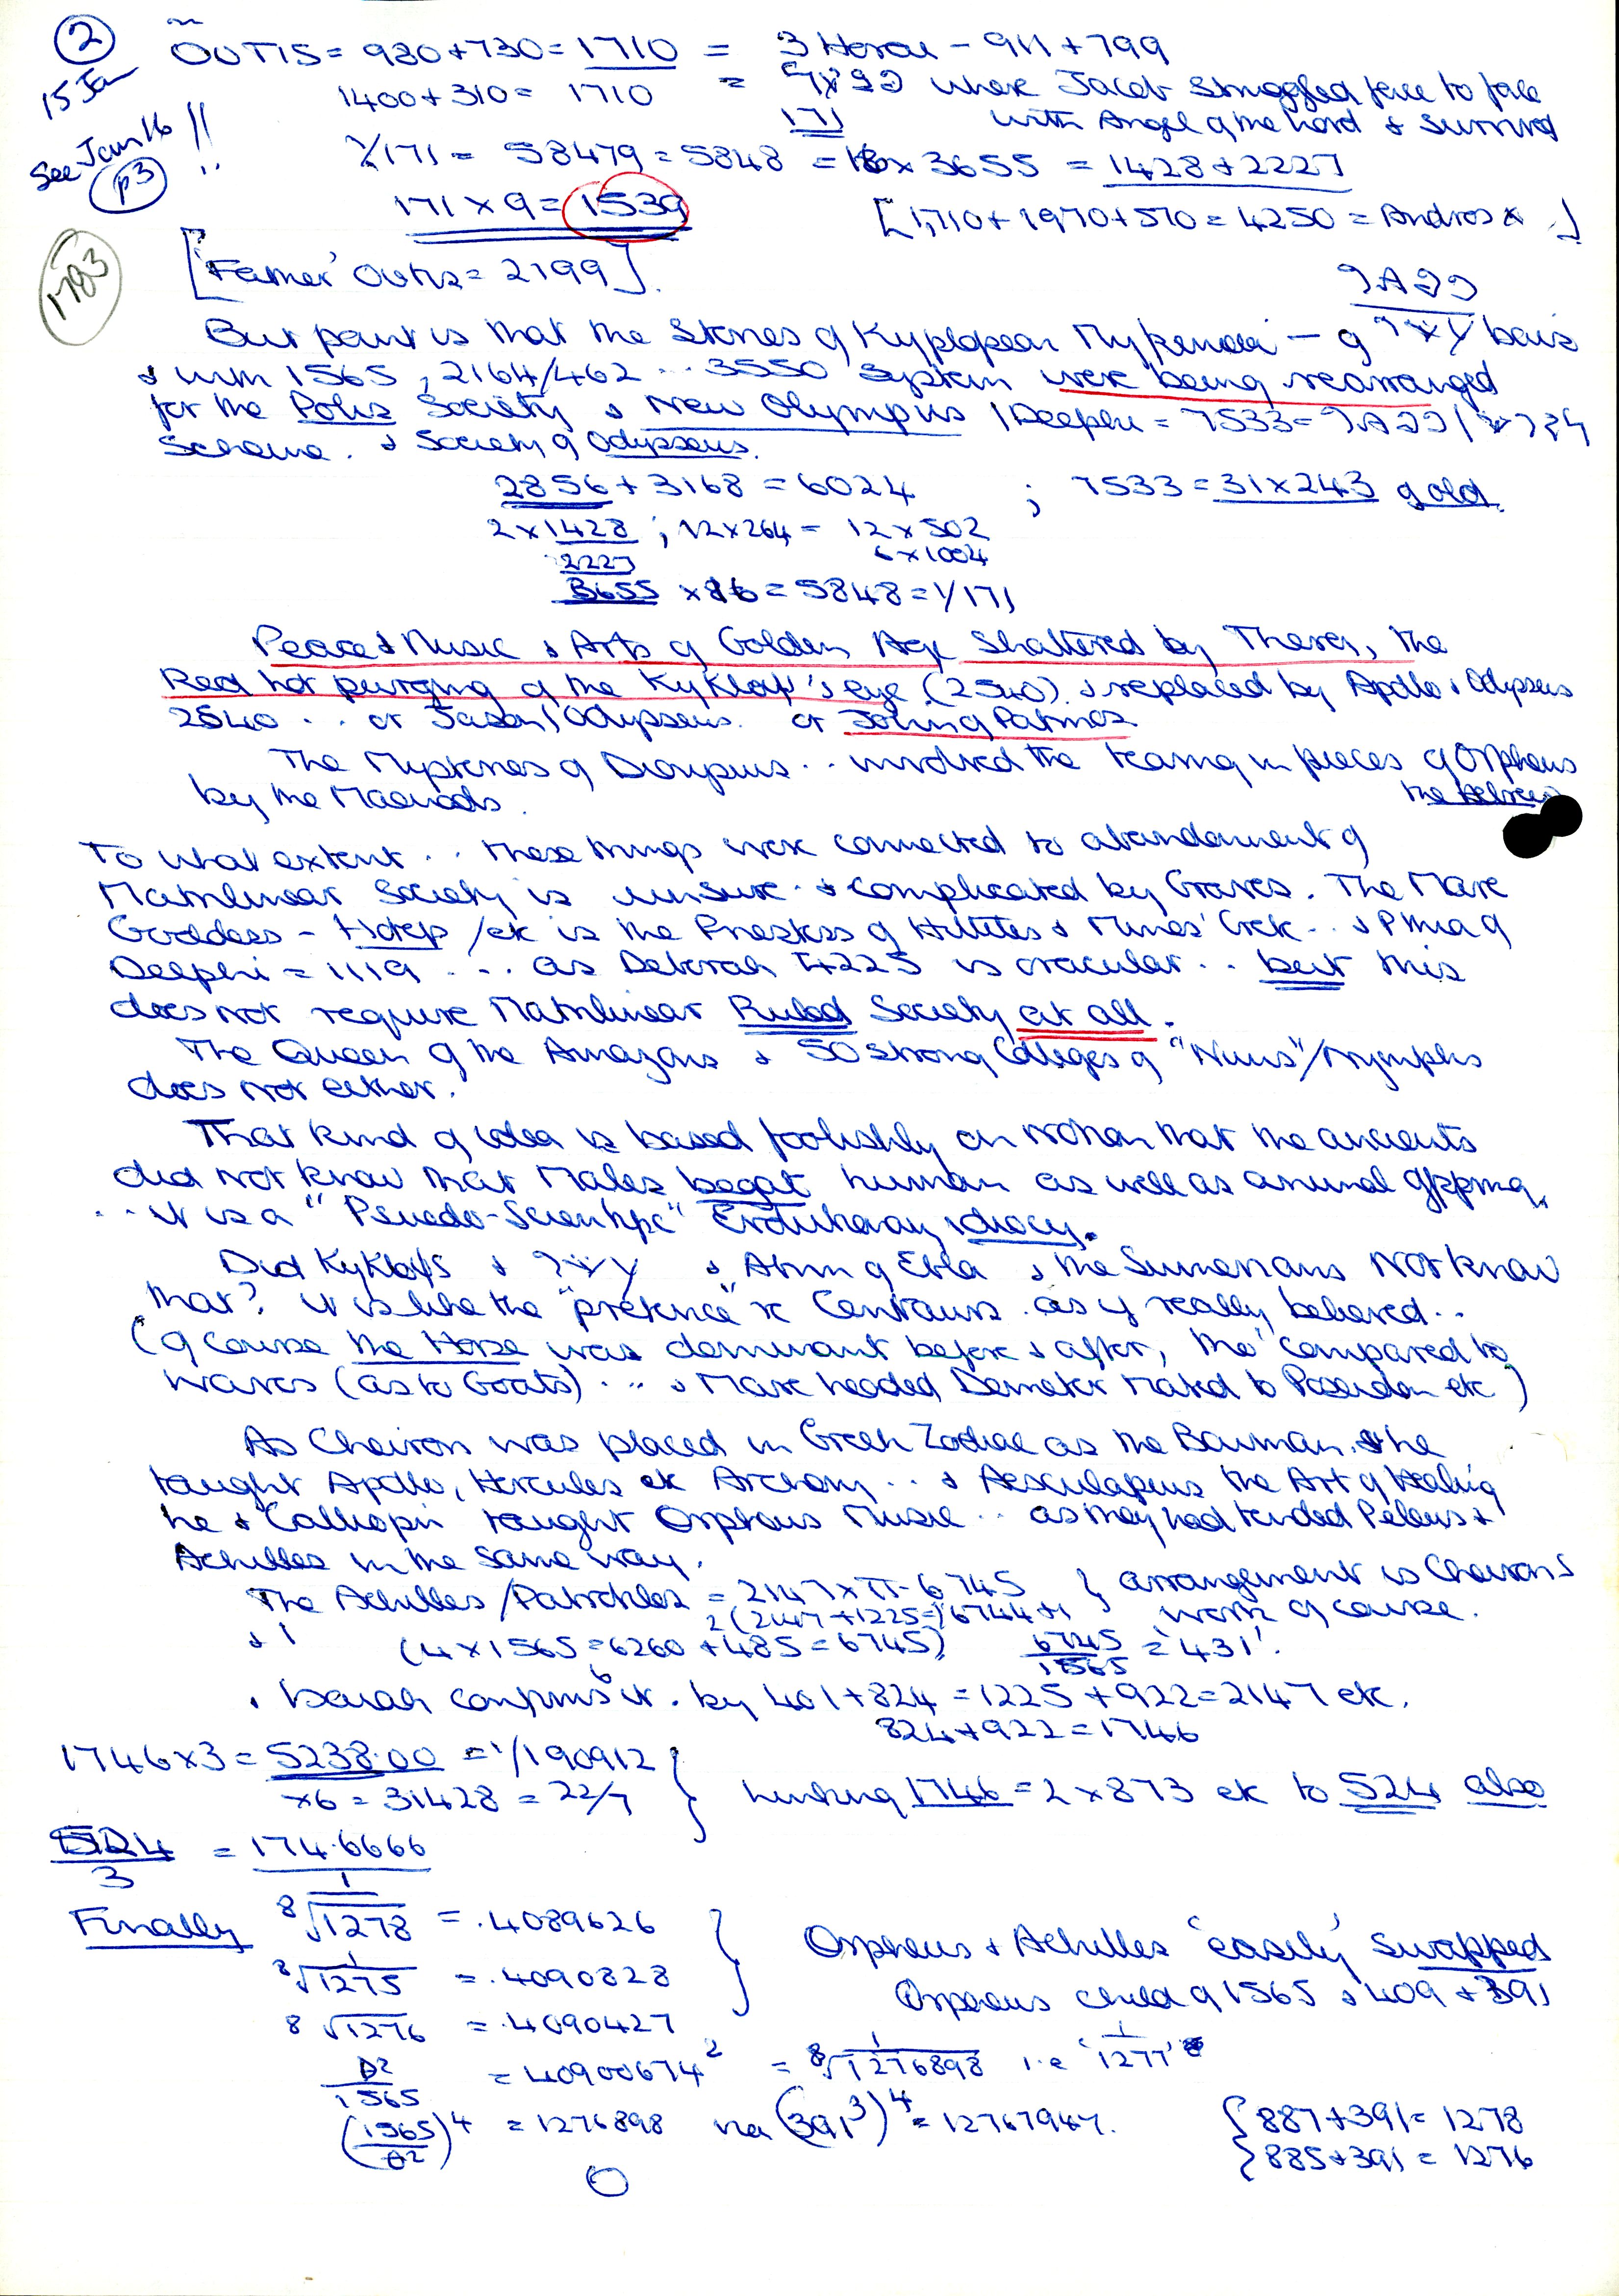 2
15 Jan
See Jan 16 !!
p3
1783
OUTIS = 980+730 = 1710 = 3 Horae - 911+799
1400+310 = 1710 = where Jacob struggled face to face
171 with Angel of the Lord & survived
1/171 = 58479 = 5848 = 16 x 3655 = 1428 + 2227
171 x 9 = 1539
[1710+1970+570 = 4250 = Andros & ]
['Father' Outis = 2199].
But point is that the Stones of Kyplopean Mykenai - of basis
& with 1565, 2164/462 ... 3550 system were being rearranged
for the Polis Society & New Olympus / Delphi = 7533 =
Scheme. & Society of Odysseus.
2856 + 3168 = 6024 ; 7533 = 31 x 243 gold.
2 x 1428 ; 12 x 264 = 12 x 502
2227 6 x 1004
3655 x 16 = 5848 = 1/171
Peace & Music & Arts of Golden Age Shattered by Theres, the
Red hot purging of the KyKlops's eye (2540) & replaced by Apollo & Odysseus
2540 .. or Jason/Odysseus. or John of Patmos
The Mysteries of Dionysus .. involved the tearing in pieces of Orpheus
by the Maenads. the Hebrew
To what extent .. these things were connected to abandonment of
Matrilinear Society is unsure. & complicated by Graves. The Mare
Goddess - /etc is the Priestess of Hittites & Minos' Crete .. & Pythia of
Delphi = 1119 ... as Deborah 4225 is oracular .. but this
does not require Matrilinear Ruled Society at all.
The Queen of the Amazons & 50 strong Colleges of "Nuns"/nymphs
does not either.
That kind of idea is based foolishly on notion that the ancients
did not know that Males begat human as well as animal offspring.
.. it is a "Pseudo-Scientific" Evolutionary idiocy.
Did KyKlops & & Abram of Ebla & the Sumerians Not know
that? it is like the "pretence" re Centaurs. as if really believed ..
(of course the Horse was dominant before & after, tho' compared to
waves (as to Goats) ... & Mare headed Demeter mated to Poseidon etc)
As Cheiron was placed in Greek Zodiac as the Bowman. & he
taught Apollo, Hercules etc Archery ... & Aesculapius the Art of Healing
he & 'Calliope' taught Orpheus Music .. as they had tended Peleus &
Achilles in the same way.
The Achilles/Patrokles = 2147 x π = 6745 } arrangement is Cheiron's
2(2147+1225=) 6744+1 work of course.
& ! (4 x 1565 = 6260 + 485 = 6745) 6745/1565 = '431'.
. Isaiah confirms it. by 401+824 = 1225 + 922 = 2147 etc.
824+922 = 1746
1746 x 3 = 5238.00 = 1/190912 }
x6 = 31428 = 22/7 linking 1746 = 2 x 873 etc to 524 also
524/3 = 174.6666
Finally 8√1/1278 = .4089626 }
8√1/1275 = .4090828 Orpheus & Achilles 'easily' swapped
Orpheus child of 1565 & 409 + 391
8√1276 = .4090427
/1565 = 40900674² = 8√1/1276898 i.e '1/1277'
(1565/)⁴ = 1276898 via (391³)⁴ = 12767947.
{ 887+391 = 1278
885+391 = 1276